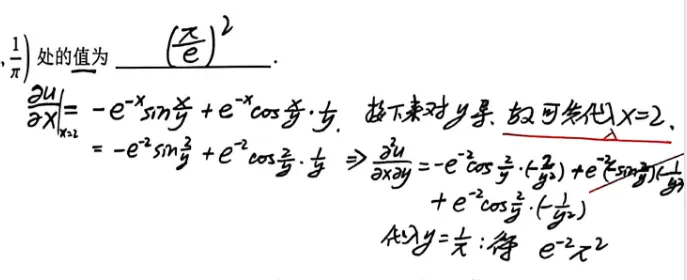 , 1/π) 处的值为 (π/e)² .
∂u/∂x|ₓ₌₂ = -e⁻ˣ sin x/y + e⁻ˣ cos x/y · 1/y. 接下来对y导. 故可先代入x=2.
= -e⁻² sin 2/y + e⁻² cos 2/y · 1/y ⇒ ∂²u/∂x∂y = -e⁻² cos 2/y · (-2/y²) + e⁻²(-sin 2/y)(-1/y²)
+ e⁻² cos 2/y · (-1/y²)
代入 y = 1/π : 得 e⁻²π²